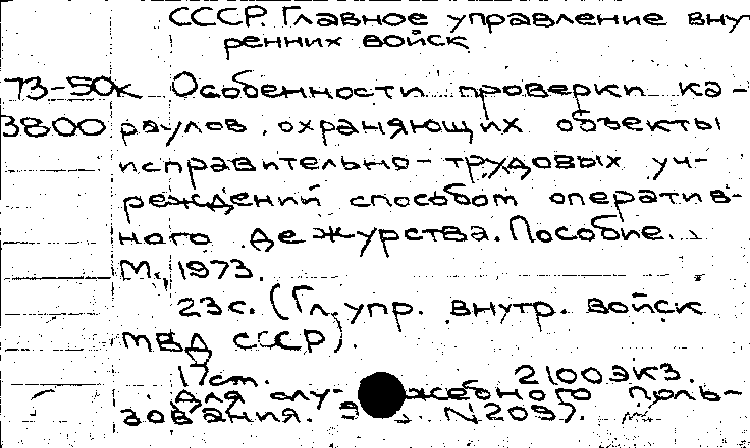 СССР. Главное управление внут
ренних войск
73-50к Особенности проверки ка-
3800 раулов, охраняющих объекты
исправительно-трудовых уч-
реждений способом оператив-
ного дежурства. Пособие.
М., 1973.
23 с. (Гл. упр. внутр. войск
МВД СССР).
17 см. 2100 экз.
Для слу- жебного поль-
зования. Э N2097.